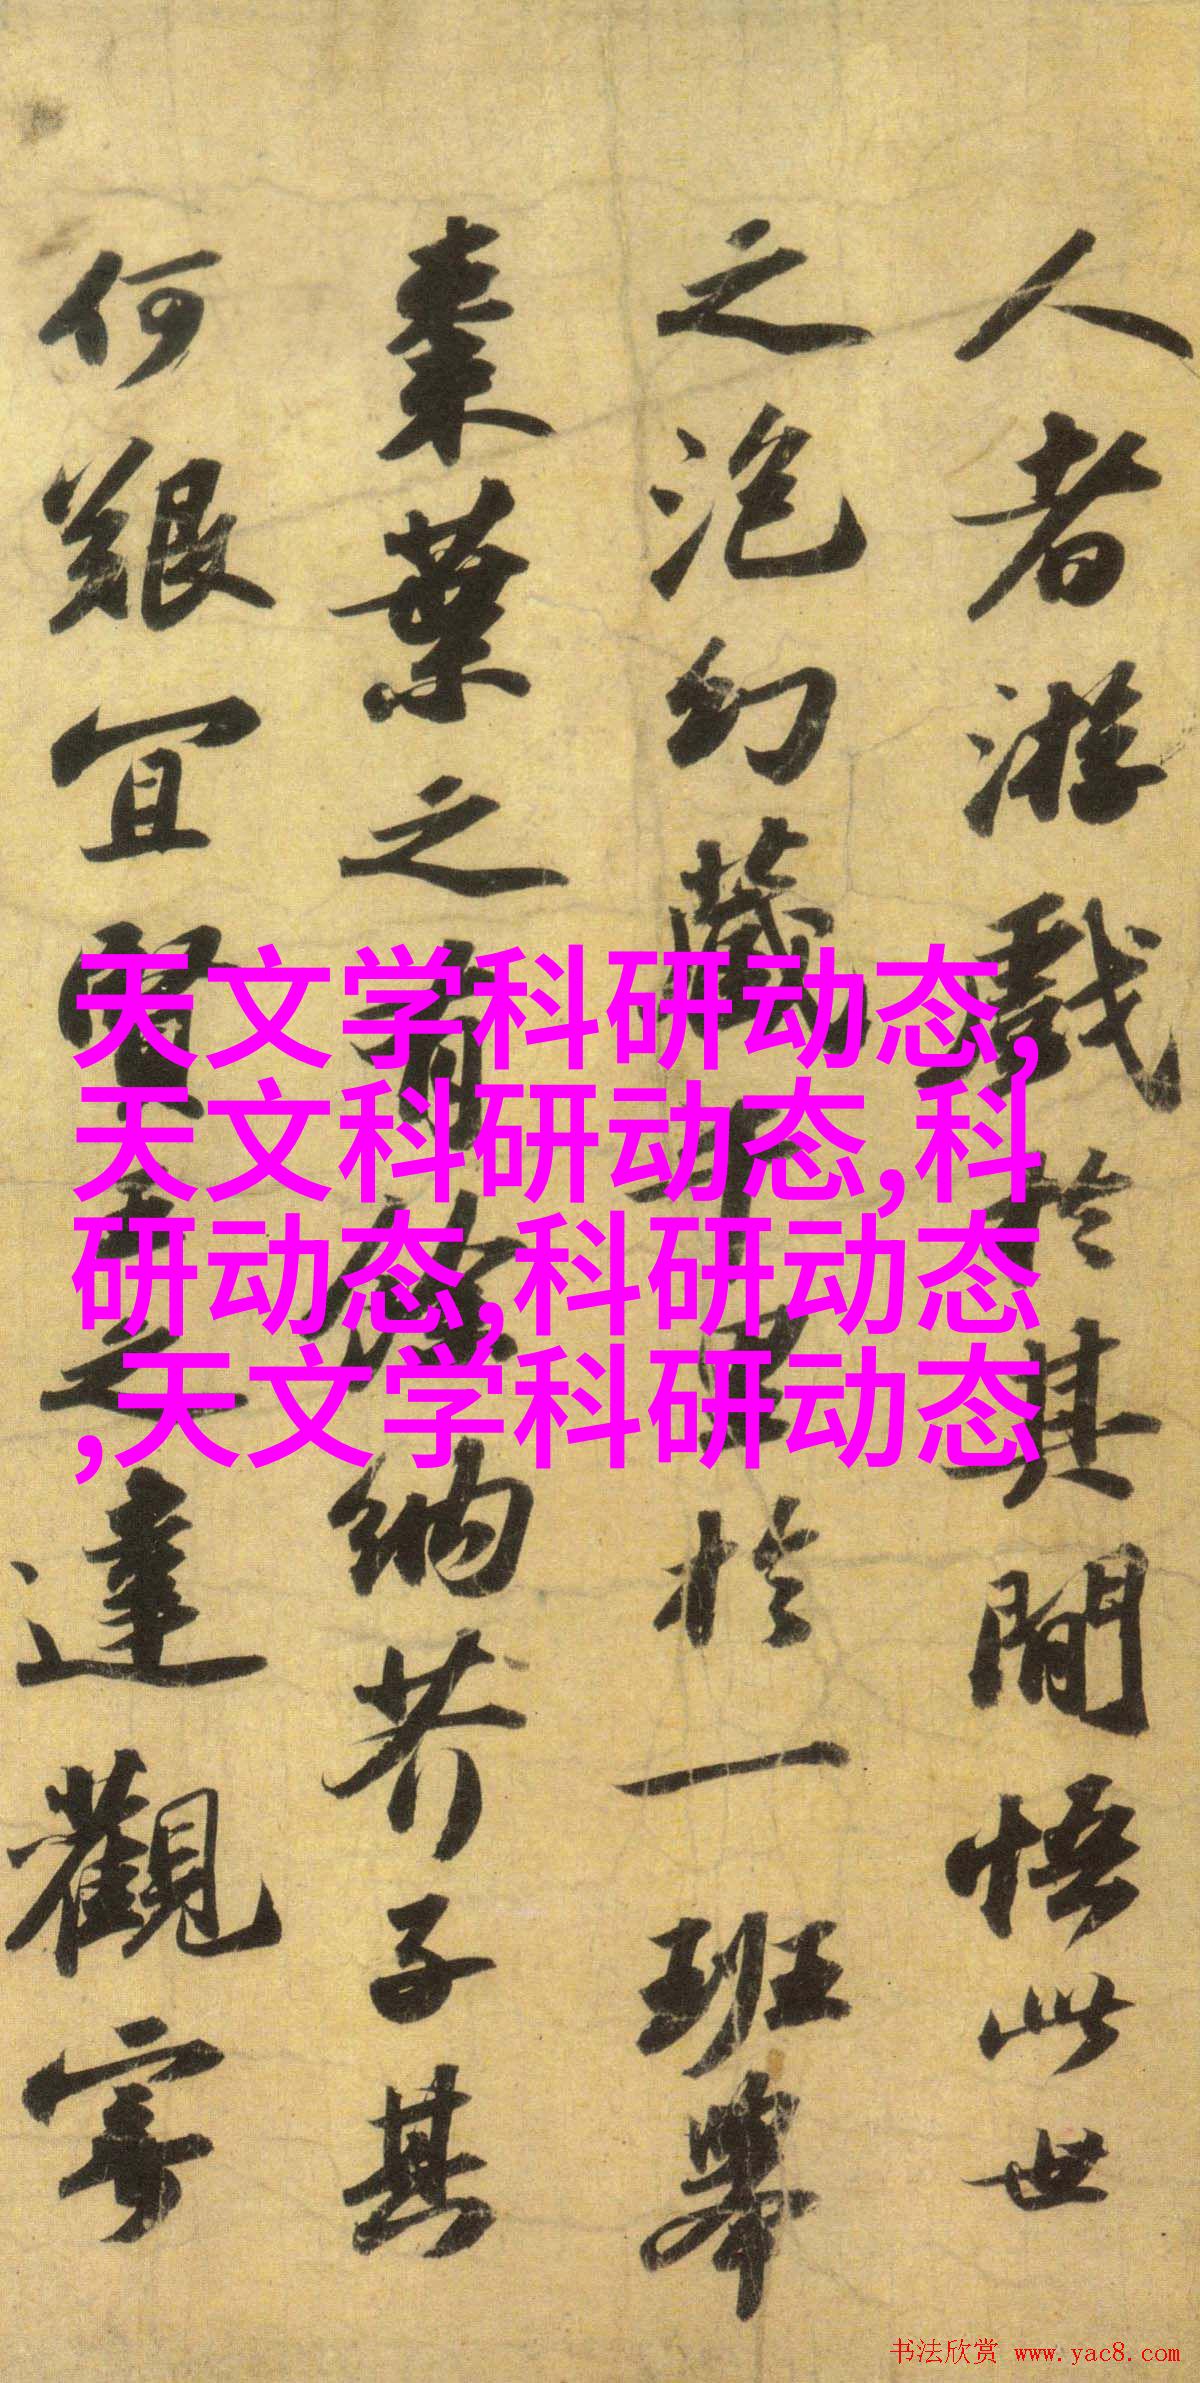 人者游戲於其間悟此世
之泡幻藏千里於一班舉
棗葉之有餘納芥子其
何艱宜賢王之達觀寄
天文学科研动态,
天文科研动态,科
研动态,科研动态
,天文学科研动态
书法欣赏 www.yac8.com